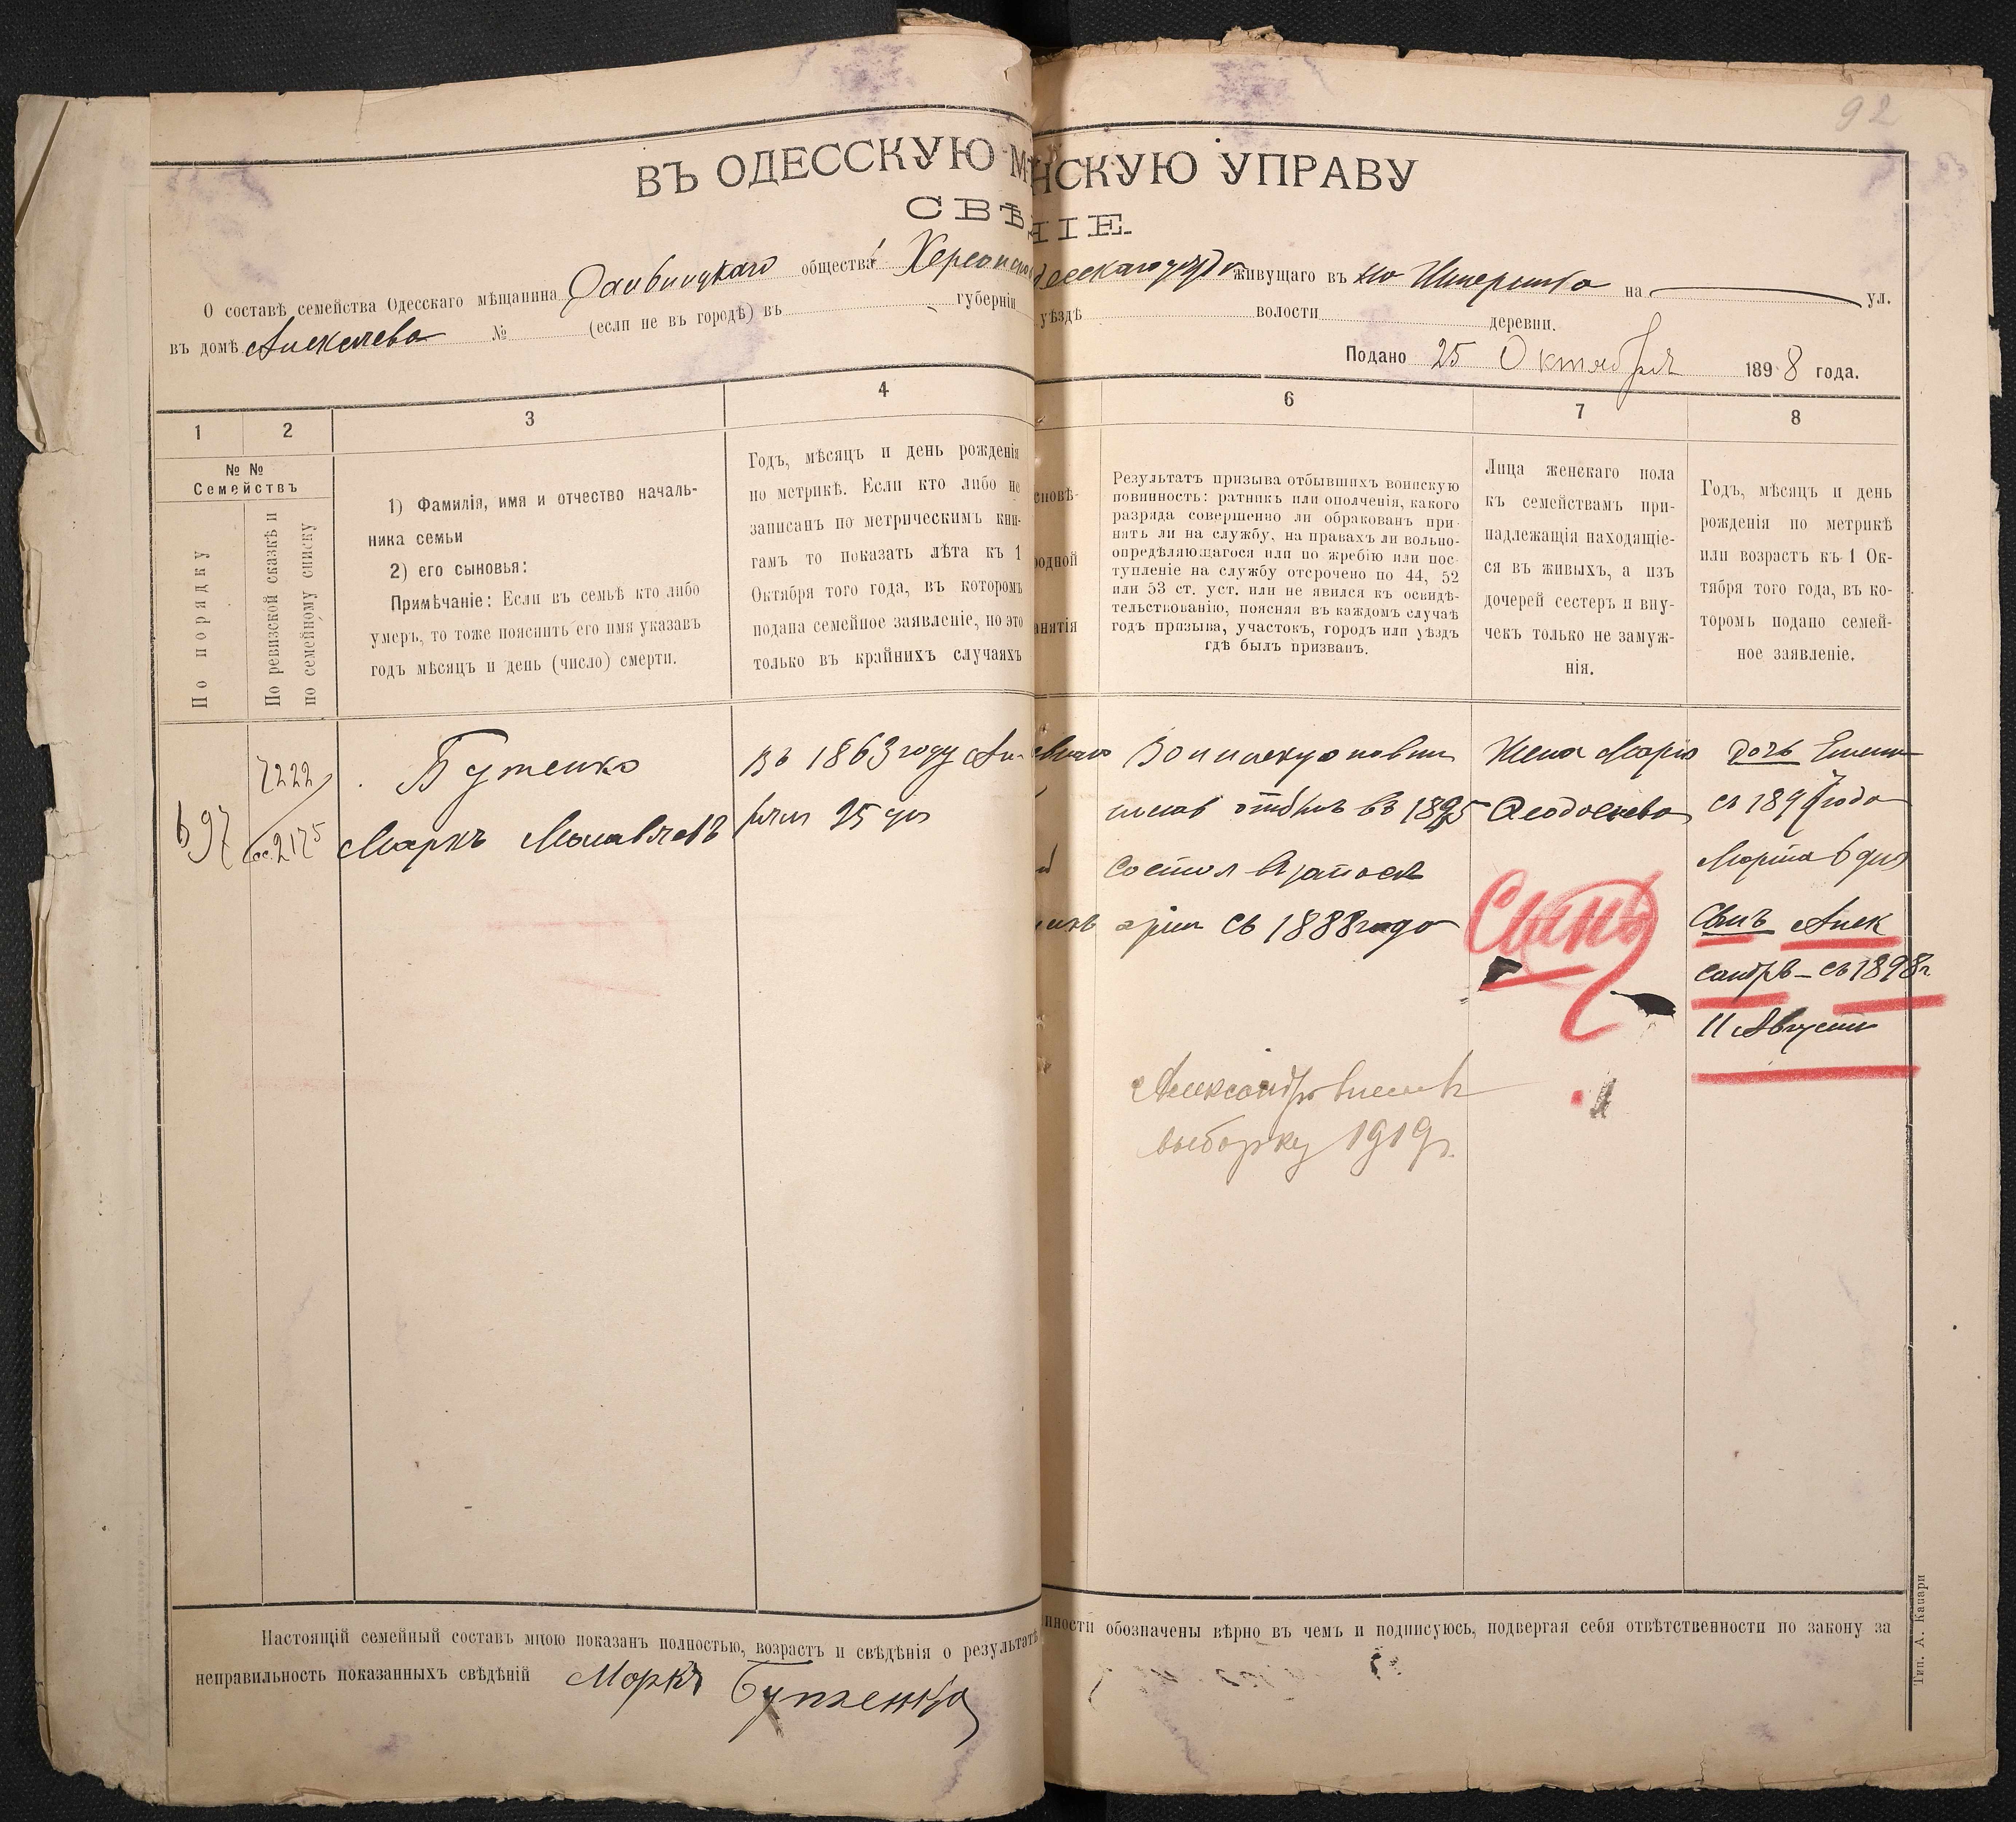 92
ВЪ ОДЕССКУЮ М НСКУЮ УПРАВУ
СВѢ НІЕ.
О составѣ семейства Одесскаго мѣщанина общества Херсонск десскаго уѣзда живущаго въ на ул.
въ домѣ Алексѣева № (если не въ городѣ) въ губерніи уѣздѣ волости деревни.
Подано 25 Октября 1898 года.
1 2 3 4 6 7 8
№ №
Семействъ
По порядку
По ревизской сказкѣ и
по семейному списку
1) Фамилія, имя и отчество началь-
ника семьи
2) его сыновья:
Примѣчаніе: Если въ семьѣ кто либо
умеръ, то тоже пояснить его имя указавъ
годъ мѣсяцъ и день (число) смерти.
Годъ, мѣсяцъ и день рожденія
по метрикѣ. Если кто либо не
записанъ по метрическимъ кни-
гамъ то показать лѣта къ 1
Октября того года, въ которомъ
подана семейное заявленіе, но это
только въ крайнихъ случаяхъ
сповѣ-
родной
анятія
Результатъ призыва отбывшихъ воинскую
повинность: ратникъ или ополченія, какого
разряда совершенно ли обракованъ при-
нятъ ли на службу, на правахъ ли вольно-
опредѣляющагося или по жребію или пос-
тупленіе на службу отсрочено по 44, 52
или 53 ст. уст. или не явился къ освидѣ-
тельствованію, поясняя въ каждомъ случаѣ
годъ призыва, участокъ, городъ или уѣздъ
гдѣ былъ призванъ.
Лица женскаго пола
къ семействамъ при-
надлежащія находящіе-
ся въ живыхъ, а изъ
дочерей сестеръ и вну-
чекъ только не замуж-
нія.
Годъ, мѣсяцъ и день
рожденія по метрикѣ
или возрастъ къ 1 Ок-
тября того года, въ ко-
торомъ подано семей-
ное заявленіе.
697
7222
2175
Бутенко
Маркъ
Въ 1863 году Ап-
рѣля 25 дня
Воинскую повин
ность отбылъ въ 1895
состоял въ запасѣ
арміи съ 1888 года
Жена Марія
Феодосіева
дочь Елена
съ 1897 года
Марта 6 дня
Сынъ
Сынъ Алек
сандръ – съ 1898 г.
11 Августа
Александръ внесенъ
выборку 1919 г.
Настоящій семейный составъ мною показанъ полностью, возрастъ и свѣдѣнія о результатѣ нности обозначены вѣрно въ чемъ и подписуюсь, подвергая себя отвѣтственности по закону за
неправильность показанныхъ свѣдѣній Маркъ Бутенко
Тип. А. Капари